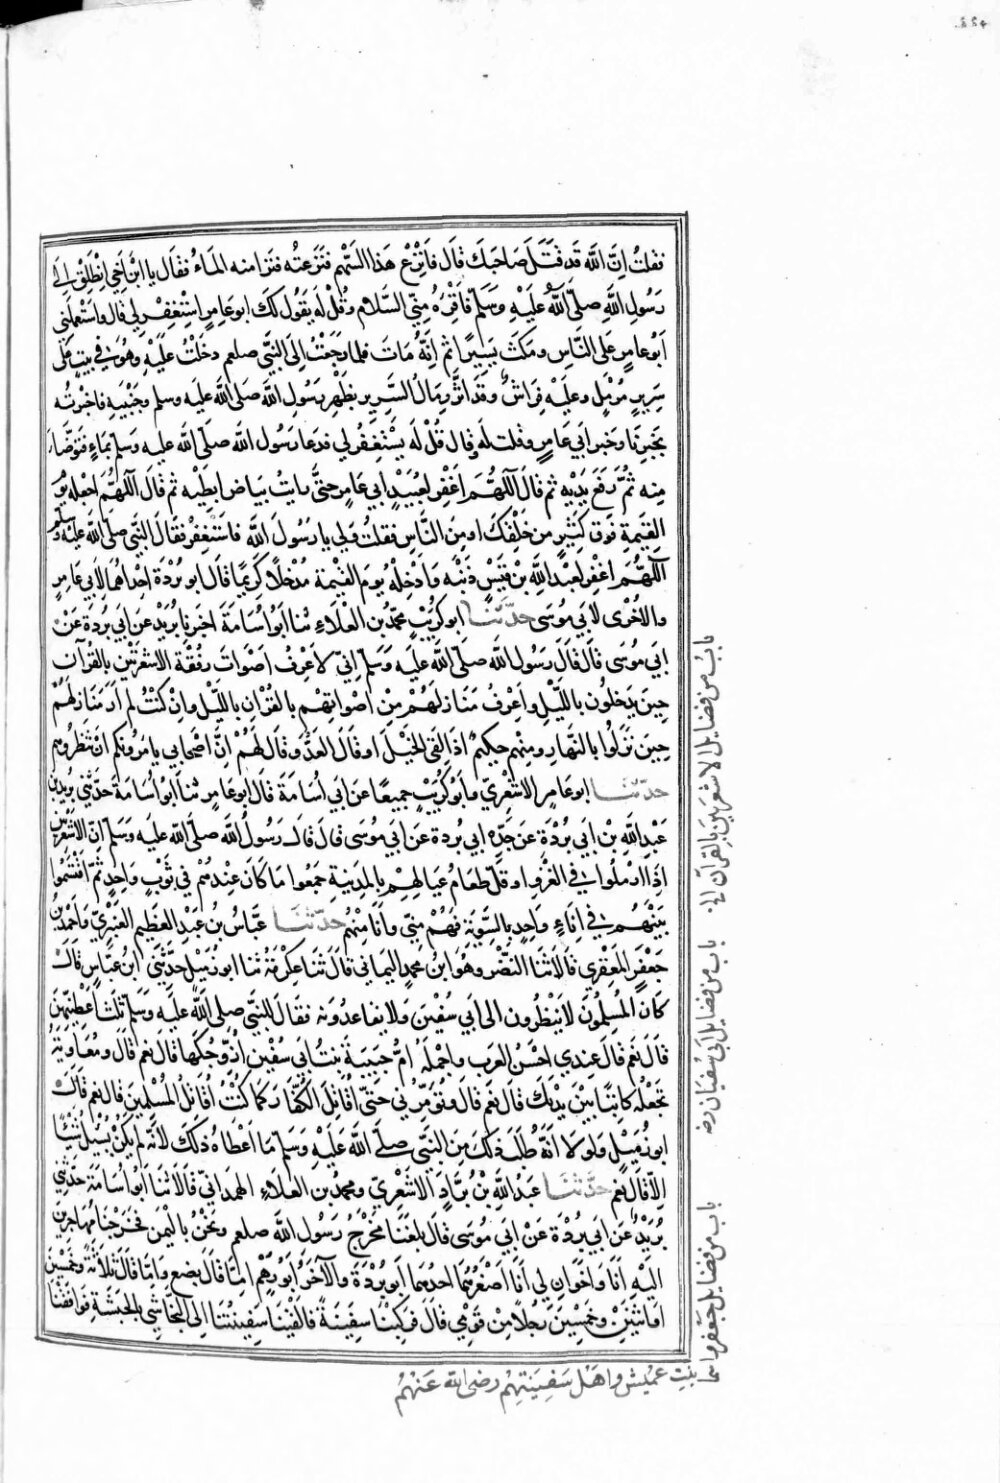 فقلت اِنَّ اللّٰه قد قَتَلَ صَاحبَكَ قال فَانْزِعْ هَذا السَّهْم فنَزعتُه فَنَزا منه المَاءُ فقال يا ابْنَ اَخِي انْطَلِقْ اِلَى
رَسُولِ اللّٰه صلّى اللّٰهُ عليْهِ وَسَلّم فَاَقْرِءْهُ مِنِّي السَّلام وقُلْ لَه يَقُولُ لكَ ابو عَامِرٍ اسْتَغْفِرْ لِي قال واسْتَعْمَلَني
اَبُو عامِرٍ عَلَى النَّاسِ ومَكثَ يَسِيرًا ثم اِنَّهُ مَاتَ فلما رجَعْتُ اِلَى النَّبِّي صلعم دخَلْتُ عَلَيْهِ وهُوَ في بيتٍ عَلَى
سَرِيرٍ مُرْمَلٍ وعليْهِ فِرَاشٌ وقَد اَثَّرَ رِمَالُ السَّرِيرِ بظَهْرِ رَسُولِ اللّٰه صَلى اللّٰه عليه وسلم وجَنْبَيهِ فاخبرتُه
بخَبَرِنَا وخَبَرِ ابي عَامِرٍ وقلت لَه قال قُلْ لَه يَسْتَغْفِرُ لي فدَعَا رَسُول اللّٰه صلّى اللّٰه عليه وسلّم بمَاءٍ فتَوَضَّأَ
مِنه ثُمَّ رفَعَ يَدَيْهِ ثم قالَ اَللّهُمَّ اغْفِرْ لعُبَيْدٍ اَبي عَامِرٍ حتَّى رايت بَيَاضَ اِبطَيْه ثم قال اَللّهُمَّ اجْعَله يَوْمَ
القيٰمةِ فَوقَ كَثِيْرٍ مِن خَلْقِكَ او مِنَ النَّاسِ فقلتُ ولِي يا رَسُولَ اللّٰه فاسْتَغْفِرْ فقَالَ النَّبِّي صلّى اللّٰه عليه وسلم
اَللّهُمَّ اغْفِر لعبْدِ اللّٰه بنِ قَيْسٍ ذَنْبَه وَادْخِلْه يومَ القيٰمة مُدْخَلًا كَرِيمًا قال ابو بُرْدَةَ احْدَاهُما لابي عَامِرٍ
والاُخْرَى لابي مُوسَى حدّثنا ابو كرَيْبٍ محمّدُ بن العَلاءِ ثنا ابُو اُسَامَةَ اخبرنا بُرَيْد عن ابي بُردَة عَنْ
ابي مُوسَى قال قال رَسُولُ اللّٰه صلّى اللّٰه عليْه وَسَلّم اِنّي لاَعْرِفُ اَصْوَاتَ رفْقَة الاشعَرّيْنَ بالقُرآن
حِينَ يَدخلُون باللَّيْلِ واَعْرِفُ مَنَازلَهُمْ مِنْ اَصْوَاتِهِمْ بالقُرْانِ باللّيْل وانْ كنْتُ لم اَرَ مَنَازلَهُمْ
حِينَ نَزَلُوا بالنَّهارِ ومِنْهِم حكِيمٌ اذَا لقِيَ الخَيْلَ او قالَ العَدُوَّ قالَ لَهُمْ اِنَّ اَصْحَابي يامرُونكم انْ تَنْظُرُوهم
حدّثنا ابو عَامِر الاشْعَرِيّ وابُو كُرَيْبٍ جميعًا عن ابي اُسَامَةَ قال ابو عامِرٍ ثنا ابُو اُسَامَةَ حدّثني بُرَيْد بن
عَبْدِ اللّٰه بْنِ ابي بُرْدَة عن جَدّه ابي بُردة عن ابي مُوسَى قال قال رَسُولُ اللّٰه صلّى اللّه عليه وَسَلّم اِنّ الاشْعَرِيّينَ
اذَا ارْمَلُوا في الغَزْوِ او قلَّ طَعَامُ عيَالِهِمْ بالمَدِينةِ جمَعُوا مَا كَانَ عِنْدهُمْ في ثَوْبٍ وَاحِدٍ ثمّ اقتَسَمُوا
بَيْنَهُمْ في اِنَاءٍ وَاحِدٍ بالسَّوِيَّةِ فهُمْ مِنِّي وانَا مِنْهُم حدّثنا عَبَّاسُ بن عَبْدِ العَظِيمِ العَنْبَرِيّ وَاحْمدُ بن
جَعْفَرٍ المَعْقَرِي قالا ثَنَا النّضْر وهُوَ ابن محمدٍ اليماني قال ثنا عِكْرِمَةُ ثنا ابو زمَيْل حدّثني ابنُ عبّاسٍ قالَ
كان المسلِمُون لا يَنْظُرون الى ابي سُفيٰنَ ولا يقَاعدُونَه فقَال للنَّبِي صلى اللّٰه عليه وسلّم ثلثٌ اَعْطِنِيهِنَّ
قال نعَم قال عِندِي احْسَنُ العَرب واجْمَلُه امُّ حَبِيبَةَ بنتُ ابي سفيٰن اُزَوِّجُكَهَا قال نعَم قال ومُعَاوِيَةُ
تجْعَلُه كَاتِبًا بيْنَ يدَيكَ قال نعَم قال وتُؤَمِّرُني حَتّى اُقَاتِلَ الكُفَّارَ كمَا كنْتُ اُقَاتلُ المُسْلِمِينَ قال نعَم قالَ
ابو زُمَيْلٍ ولولا انَّه طَلَبَ ذلكَ مِنَ النَّبِّي صلى اللّٰه عَلَيْهِ وَسَلّم مَا اَعْطَاهُ ذلكَ لاَنَّه لم يَكُنْ يُسْئَل شَيْئًا
الّا قال نعَم حدّثنا عَبْدُ اللّٰهِ بْنُ بَرَّادٍ الاشْعَرِيّ ومحمدُ بن العَلاءِ الهمدانيّ قالا ثنا ابُو اُسَامَة حدّثني
بُرَيْدٌ عن ابي بُرْدَةَ عَنْ ابي مُوسَى قال بلغَنا مخْرَجُ رَسُول اللّٰه صلعم ونحْنُ باليمَن فخَرَجْنَا مُهَاجرين
اليْهِ انا وَاخوَانِ لي انَا اَصْغَرُهُمَا احدُهما ابو بُرْدَة والآخَرُ ابُو رُهْمٍ امّا قالَ بضع وامّا قال ثلاثَةً وخمْسِينَ
او اثنَيْنِ وخمْسِينَ رَجُلًا مِنْ قَوْمِي قال فركِبْنا سفِينَةً فالقَتْنَا سَفِينتُنا اِلَى النجَاشِي بالحبَشَةِ فوافقْنَا
باب من فضايل الاشعريين بالقرآن الخ
باب من فضايل ابي سفيان رضه
باب من فضايل جعفر واسما
بنت عميس واهل سفينتهم رضى الله عنهم